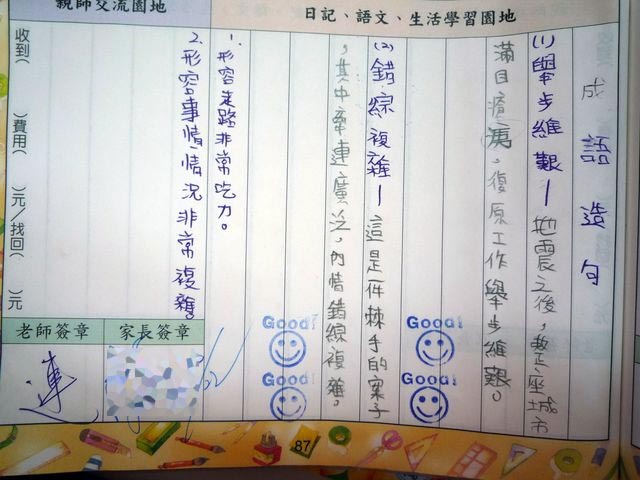 日記、語文、生活學習園地
成語造句
(1)舉步維艱—地震之後，整座城市
滿目瘡夷，復原工作舉步維艱。
(2)錯綜複雜—這是一件棘手的案子
，其中牽連廣泛，內情錯綜複雜。
1.形容走路非常吃力。
2.形容事情情況非常複雜。
Good!
Good!
Good!
Good!
親師交流園地
收到(　　)費用(　　)元/找回(　　)元
家長簽章
老師簽章
連
87